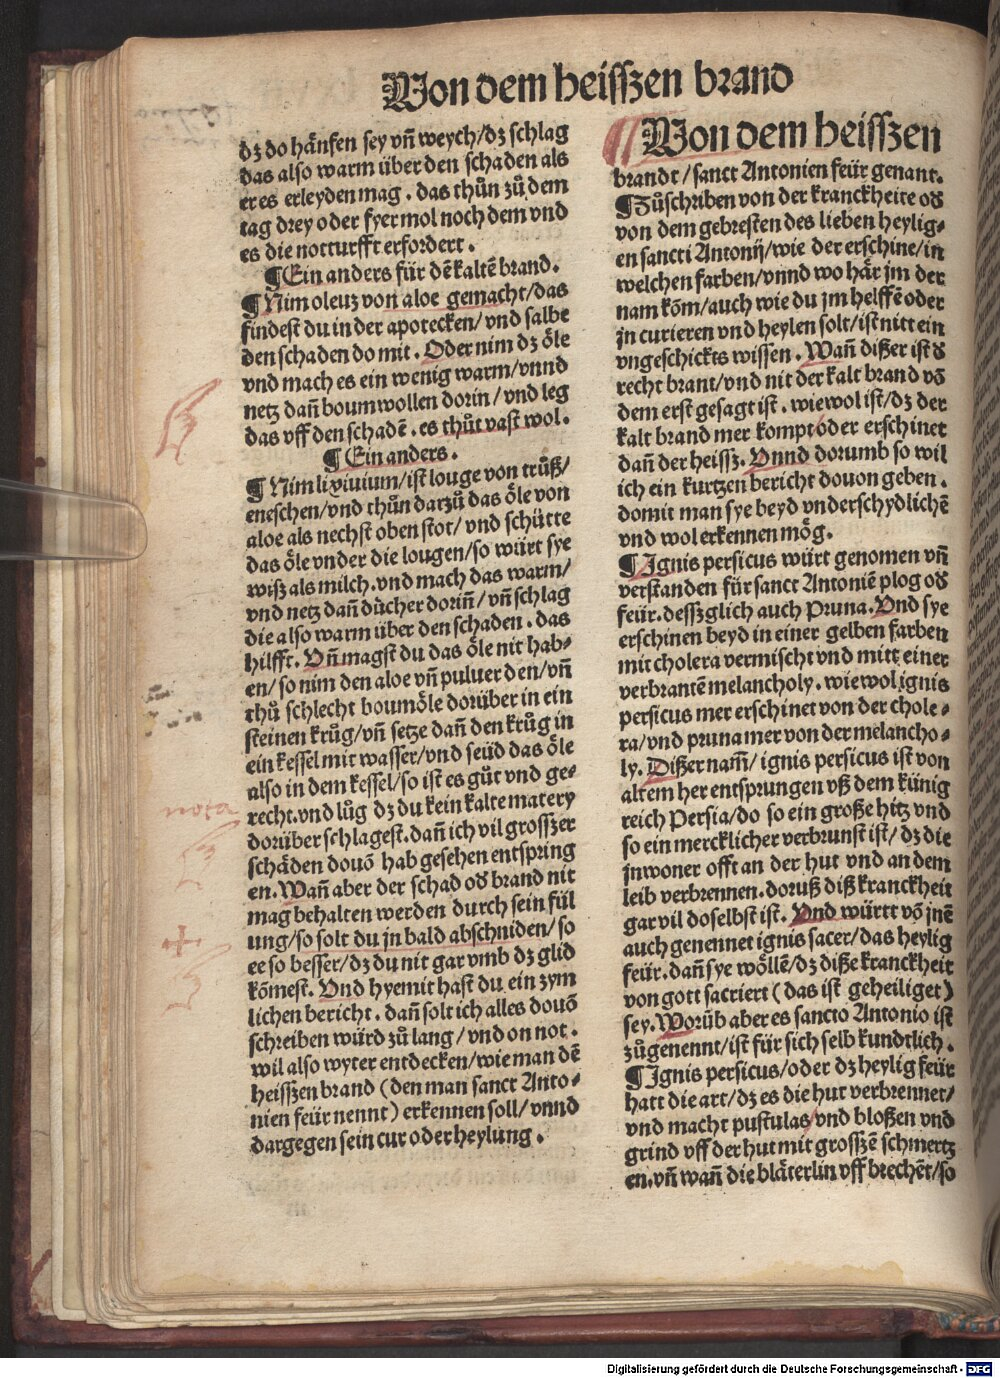 Von dem heisszen brand
dz do hänfen sey vñ weych/dz schlag
das also warm über den schaden als
er es erleyden mag. das thůn zů dem
tag drey oder fyer mol noch dem vnd
es die notturfft erfordert.
¶Ein anders für dē kaltē brand.
¶Nim oleuz von aloe gemacht/das
findest du in der apotecken/vnd salbe
den schaden do mit. Oder nim dz öle
vnd mach es ein wenig warm/vnnd
netz dañ boumwollen dorin/vnd leg
das vff den schadē. es thůt vast wol.
¶Ein anders.
¶Nim lixiuium/ist louge von trůß/
eneschen/vnd thůn darzů das öle von
aloe als nechst oben stot/vnd schütte
das öle vnder die lougen/so würt sye
wiß als milch. vnd mach das warm/
vnd netz dañ dücher doriñ/vñ schlag
die also warm über den schaden. das
hilfft. Vñ magst du das öle nit hab-
en/so nim den aloe vñ puluer den/vñ
thů schlecht boumöle dorüber in ein
steinen krůg/vñ setze dañ den krůg in
ein kessel mit wasser/vnd seüd das öle
also in dem kessel/so ist es gůt vnd ge-
recht. vnd lůg dz du kein kalte matery
nota
dorüber schlagest. dañ ich vil grosszer
schäden douō hab gesehen entspring
en. Wañ aber der schad od brand nit
mag behalten werden durch sein fül
ung/so solt du jn bald abschniden/so
ee so besser/dz du nit gar vmb dz glid
kōmest. Vnd hyemit hast du ein zym
lichen bericht. dañ solt ich alles douō
schreiben würd zů lang/vnd on not.
wil also wyter entdecken/wie man dē
heisszen brand (den man sanct Anto-
nien feür nennt) erkennen soll/vnnd
dargegen sein cur oder heylung.
Von dem heisszen
brandt/sanct Antonien feür genant.
¶Zůschriben von der kranckheite od
von dem gebresten des lieben heylig-
en sancti Antonij/wie der erschine/in
welchen farben/vnnd wo här jm der
nam kōm/auch wie du jm helffē oder
jn curieren vnd heylen solt/ist nitt ein
vngeschickts wissen. Wañ dißer ist d
recht brant/vnd nit der kalt brand vō
dem erst gesagt ist. wiewol ist/dz der
kalt brand mer kompt oder erschinet
dañ der heissz. Vnnd dorumb so wil
ich ein kurtzen bericht douon geben.
domit man sye beyd vnderschydlichē
vnd wol erkennen mög.
¶Ignis persicus würt genomen vñ
verstanden für sanct Antoniē plog od
feür. desszglich auch Pruna. Vnd sye
erschinen beyd in einer gelben farben
mit cholera vermischt vnd mitt einer
verbrantē melancholy. wiewol ignis
persicus mer erschinet von der chole-
ra/vnd pruna mer von der melancho-
ly. Dißer nam̄/ignis persicus ist von
altem her entsprungen vß dem künig
reich Persia/do so ein große hitz vnd
so ein mercklicher verbrunst ist/dz die
jnwoner offt an der hut vnd an dem
leib verbrennen. doruß diß kranckheit
gar vil doselbst ist. Vnd württ vō jnē
auch genennet ignis sacer/das heylig
feür. dañ sye wöllē/dz diße kranckheit
von gott sacriert (das ist geheiliget)
sey. Worüb aber es sancto Antonio ist
zůgenennt/ist für sich selb kundtlich.
¶Ignis persicus/oder dz heylig feür
hatt die art/dz es die hut verbrennet/
vnd macht pustulas/vnd bloßen vnd
grind vff der hut mit grosszē schmertz
en. vñ wañ die bläterlin vff brechēt/so
Digitalisierung gefördert durch die Deutsche Forschungsgemeinschaft - DFG